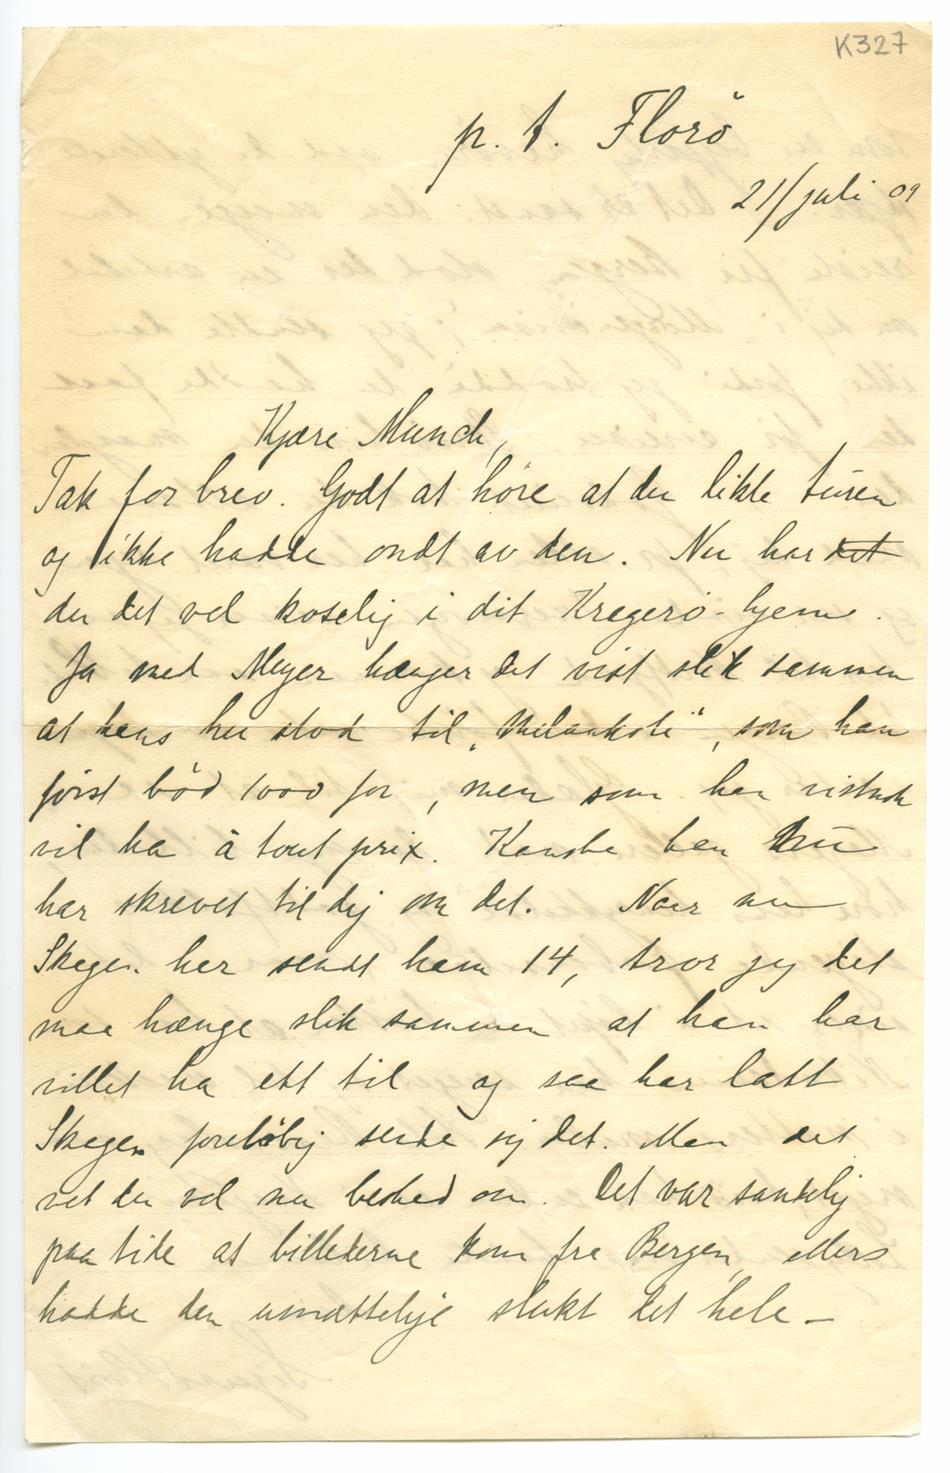 K327
p. t. Florö
21/juli 09
Kjære Munch,
Tak for brev. Godt at höre at du likte turen
og ikke hadde ondt av den. Nu har det
du det vel koselig i dit Kragerö-hjem.
Ja med Meyer hænger det vist slik sammen
at hans hu stod til „Melankoli", som han
först böd 1000 for, men som han nistnok
vil ha à tout prix. Kanske han nu
har skrevet til dig om det. Naar nu
Skagen har sendt ham 14, tror jeg det
maa hænge slik sammen at han har
villet ha ett til og saa har latt
Skagen forelöbig sende sig det. Men det
vet du vel nu besked om. Det var sandelig
paa tide at billederne kom fra Bergen, ellers
hadde den umættelige slukt det hele —